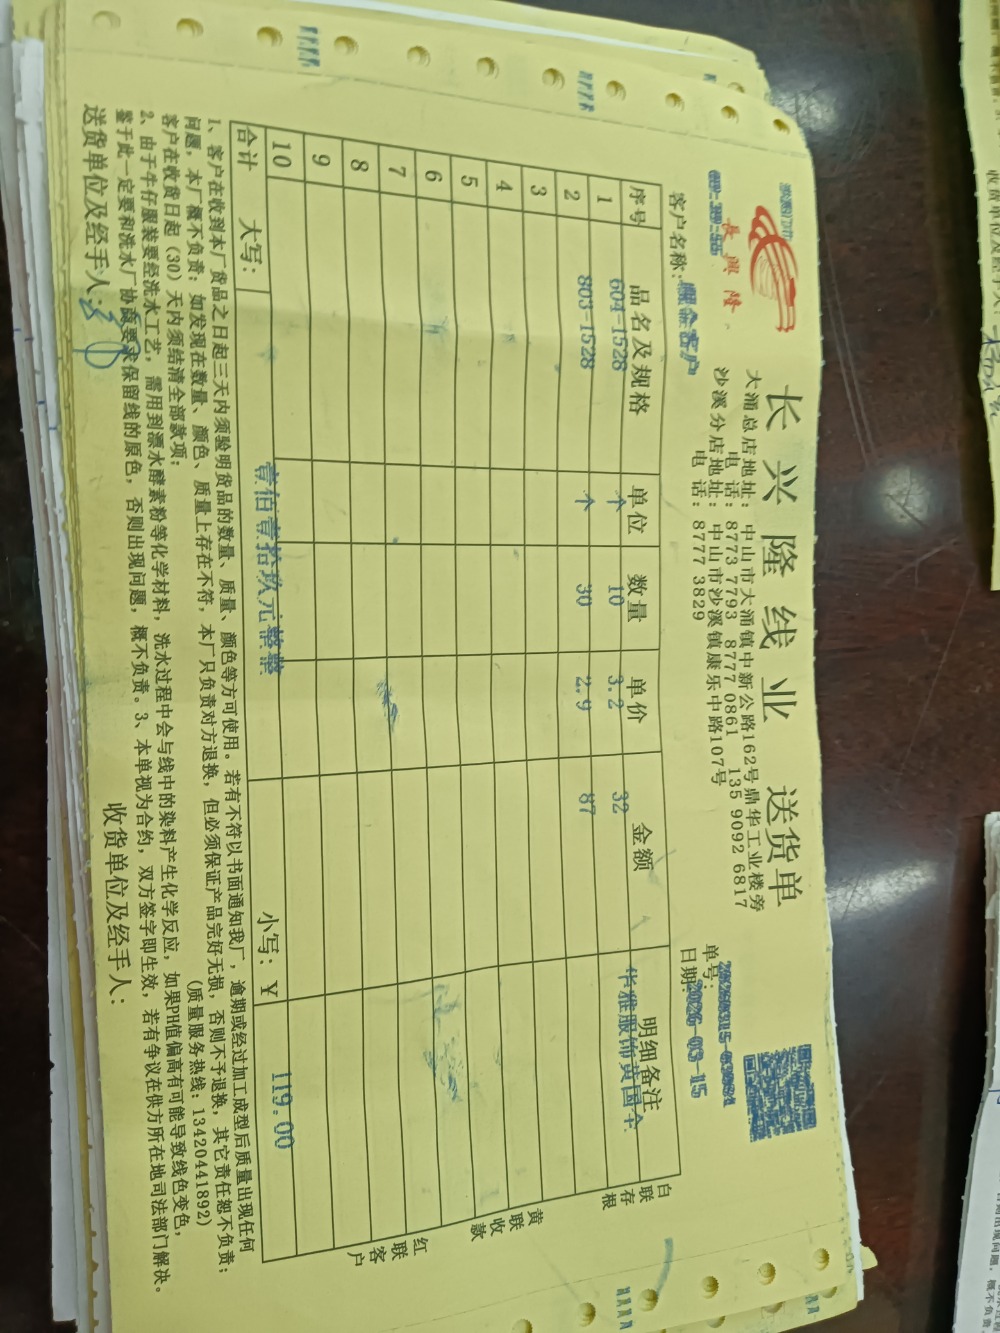 长兴隆线业 送货单
長興隆
大涌总店地址：中山市大涌镇中新公路162号鼎华工业楼旁
电话：8773 7793 8777 0861 135 9092 6817
沙溪分店地址：中山市沙溪镇康乐中路107号
电话：8777 3829
单号：
客户名称：现金客户
日期：2026-03-15
序号 品名及规格 单位 数量 单价 金额 明细备注
1 604-1528 个 10 3.2 32 华雅服饰黄国
2 803-1528 个 30 2.9 87
3
4
5
6
7
8
9
10
合计 大写：壹佰壹拾玖元整 小写：¥ 119.00
白联存根
黄联收款
红联客户
1、客户在收到本厂货品之日起三天内须验明货品的数量、质量、颜色等方可使用。若有不符以书面通知我厂，逾期或经过加工成型后质量出现任何
问题，本厂概不负责；如发现在数量、颜色、质量上存在不符，本厂只负责对方退换，但必须保证产品完好无损，否则不予退换，其它责任恕不负责；
客户在收货日起（30）天内须结清全部款项； (质量服务热线：13420441892)
2、由于牛仔服装要经洗水工艺，需用到漂水酵素粉等化学材料，洗水过程中会与线中的染料产生化学反应，如果PH值偏高有可能导致线色变色，
鉴于此一定要和洗水厂协商要求保留线的原色，否则出现问题，概不负责。3、本单视为合约，双方签字即生效，若有争议在供方所在地司法部门解决。
送货单位及经手人： 收货单位及经手人：